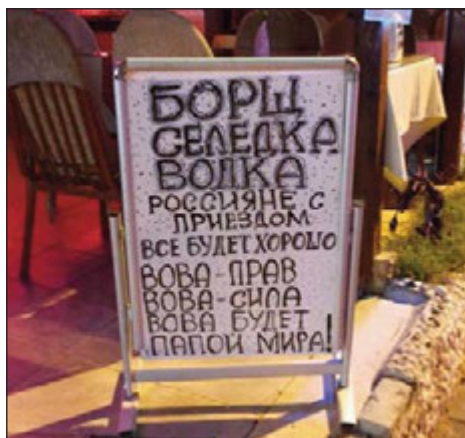 БОРЩ
СЕЛЕДКА
ВОДКА
РОССИЯНЕ С
ПРИЕЗДОМ
ВСЕ БУДЕТ ХОРОШО
ВОВА-ПРАВ
ВОВА-СИЛА
ВОВА БУДЕТ
ПАПОЙ МИРА!